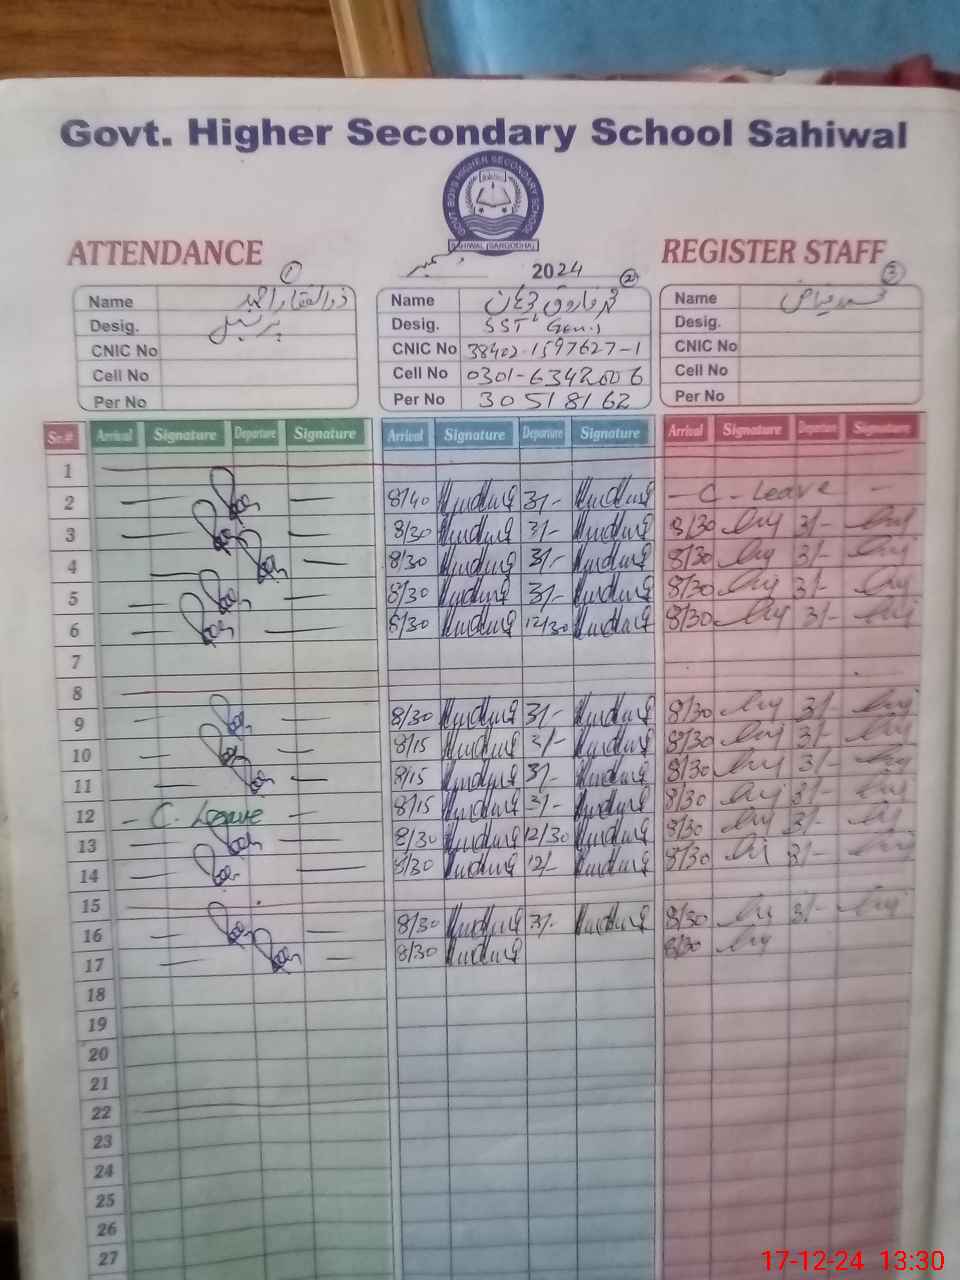 Govt. Higher Secondary School Sahiwal
GOVT BOYS HIGHER SECONDARY SCHOOL
SAHIWAL (SARGODHA)
ATTENDANCE
دسمبر 2024
REGISTER STAFF
1
Name ذوالفقار احمد
Desig. پرنسپل
CNIC No
Cell No
Per No
2
Name
Desig. SST Gen.
CNIC No 38402-1597627-1
Cell No 0301-6342606
Per No 30518162
3
Name
Desig.
CNIC No
Cell No
Per No
Sr.# Arrival Signature Departure Signature Arrival Signature Departure Signature Arrival Signature Departure Signature
1
2 8/40 3/- - C. Leave -
3 8/30 3/- 8/30 3/-
4 8/30 3/- 8/30 3/-
5 8/30 3/- 8/30 3/-
6 8/30 12/30 8/30 3/-
7
8
9 8/30 3/- 8/30 3/-
10 8/15 3/- 8/30 3/-
11 8/15 3/- 8/30 3/-
12 - C. Leave - 8/15 3/- 8/30 3/-
13 8/30 12/30 8/30 3/-
14 8/30 12/- 8/30 3/-
15
16 8/30 3/- 8/30 3/-
17 8/30 8/30
18
19
20
21
22
23
24
25
26
27
17-12-24 13:30